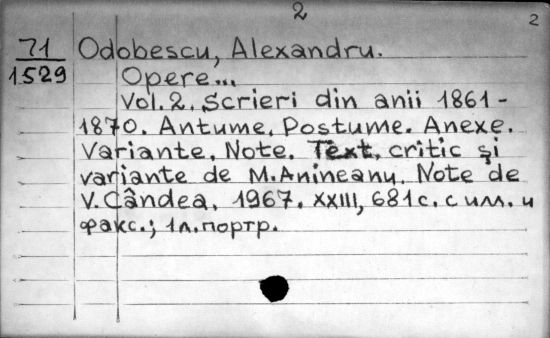 2
2
71
1529
Odobescu, Alexandru.
Opere...
Vol. 2. Scrieri din anii 1861-
1870. Antume. Postume. Anexe.
Variante. Note. Text. critic şi
variante de M. Anineanu. Note de
V. Cândea. 1967. XXIII, 681 с. с илл. и
факс.; 1 л. портр.